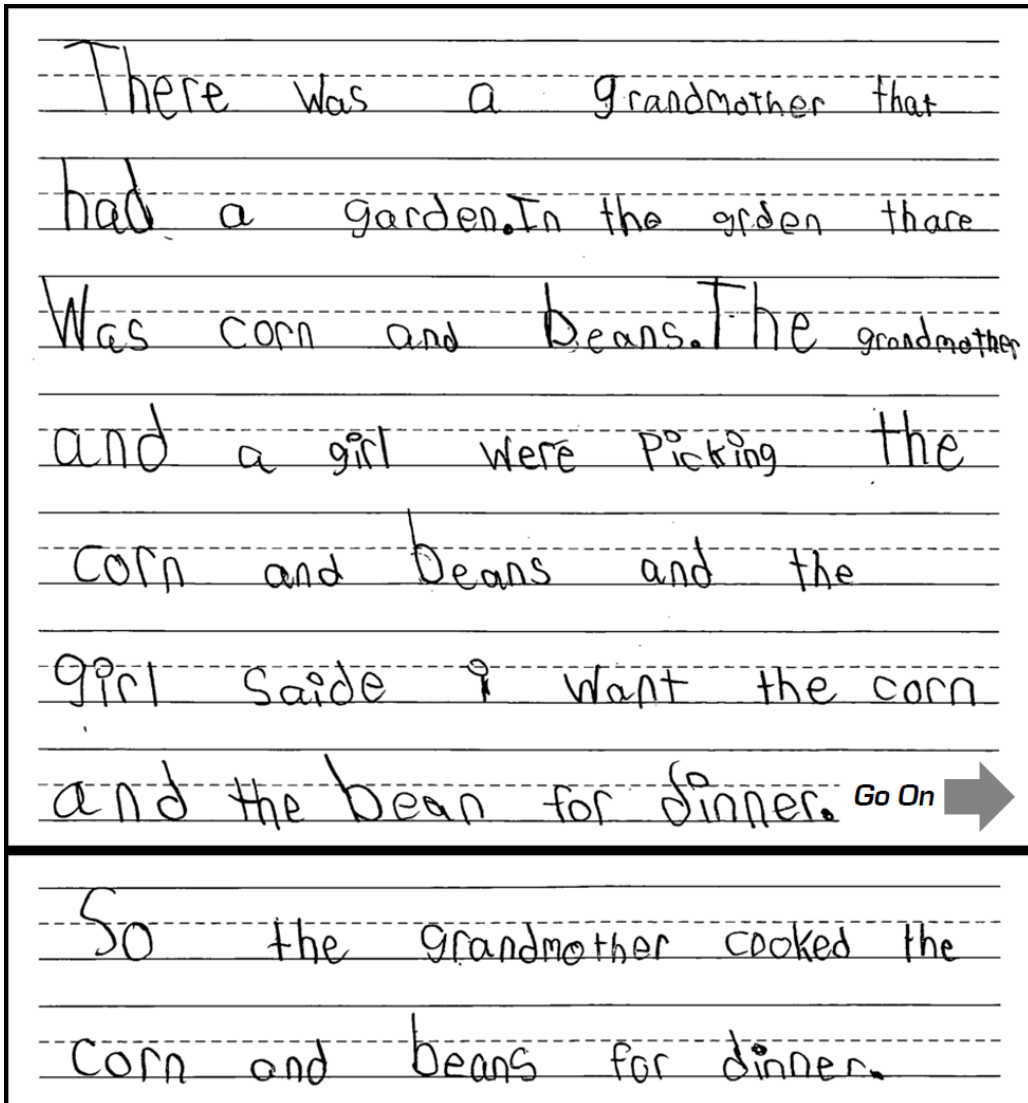 There was a grandmother that
had a garden.In the grden thare
Was corn and beans.The grandmother
and a girl were Picking the
corn and beans and the
girl saide i want the corn
and the bean for dinner. Go On
So the grandmother cooked the
corn and beans for dinner.